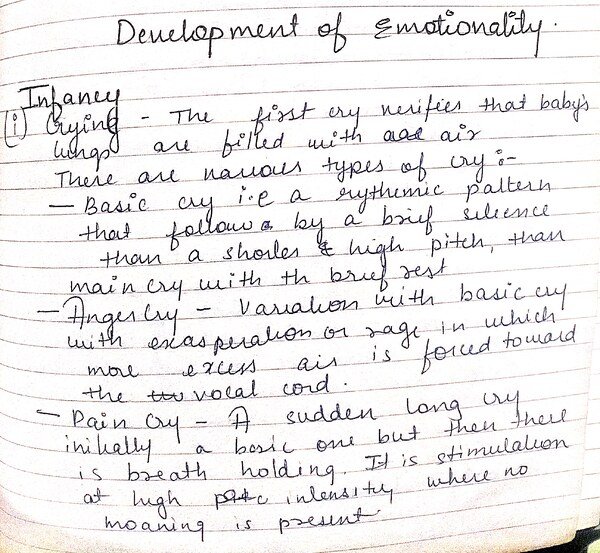 Development of Emotionality.
Infancy
(i) Crying - The first cry verifies that baby's
lungs are filled with air
There are various types of cry :-
— Basic cry i.e a rythemic pattern
that follows by a brief silence
than a shorter & high pitch, than
main cry with th brief rest
— Anger Cry - Variation with basic cry
with exasperation or rage in which
more excess air is forced toward
the vocal cord.
— Pain Cry - A sudden long cry
initially a basic one but then there
is breath holding. It is stimulation
at high intensity where no
moaning is present